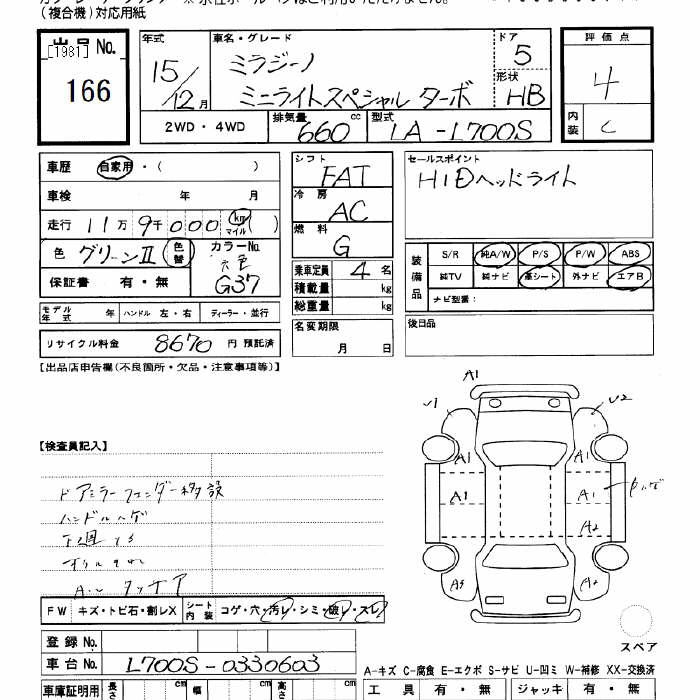 (複合機)対応用紙
出品 No.
[1981]
166
年式
15/12月
車名・グレード
ミラジーノ
ミニライトスペシャル ターボ
ドア
5
形状
HB
2WD・4WD
排気量
660 cc
型式
LA-L700S
評価点
4
内装
C
車歴 自家用・( )
車検 年 月
走行 11万 9千 000 km マイル
色 グリーンII 色替
カラーNo.
元色
G37
保証書 有・無
モデル年式 年 ハンドル 左・右 ディーラー・並行
リサイクル料金 8670 円 預託済
シフト
FAT
冷房
AC
燃料
G
乗車定員 4 名
積載量 kg
総重量 kg
名変期限
月 日
セールスポイント
HIDヘッドライト
装備品
S/R 純A/W P/S P/W ABS
純TV 純ナビ 革シート 外ナビ エアB
ナビ型番:
後日品
【出品店申告欄(不良箇所・欠品・注意事項等)】
【検査員記入】
ドアミラーフェンダー移設
ハンドルハゲ
下廻
FW キズ・トビ石・割レX シート内装 コゲ・穴・汚レ・シミ・破レ・スレ
登録 No.
車台 No. L700S-0330603
車庫証明用 長さ cm 幅 cm 高さ cm
A1
U2
A1
A1
A1
A1
A2
A3
A2
スペア
A-キズ C-腐食 E-エクボ S-サビ U-凹ミ W-補修 XX-交換済
工具 有・無 ジャッキ 有・無